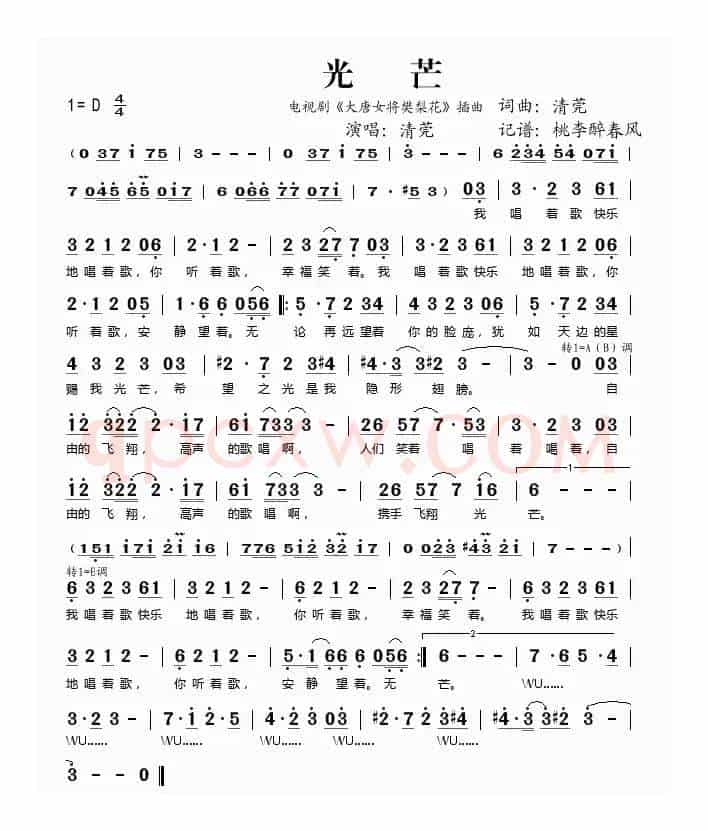 光 芒
1= D 4/4 电视剧《大唐女将樊梨花》插曲 词曲：清莞
演唱：清莞 记谱：桃李醉春风
( 0 37 i 75 | 3 - - - | 0 37 i 75 | 3 - - - | 6 234 54 07i |
7 045 65 017 | 6 066 77 07i | 7 · #5 3 ) 03 | 3 · 2 3 61 |
我 唱 着 歌 快乐
3 2 1 2 06 | 2 · 1 2 - | 2 3 27 7 03 | 3 · 2 3 61 | 3 2 1 2 06 |
地 唱 着 歌，你 听 着 歌， 幸 福 笑 着。我 唱 着 歌 快乐 地 唱 着 歌，你
2 · 1 2 05 | 1 · 6 6 056 |: 5 · 7 2 34 | 4 3 2 3 06 | 5 · 7 2 34 |
听 着 歌，安 静 望 着。无 论 再 远 望着 你 的 脸 庞，犹 如 天 边 的 星
转1=A（B）调
4 3 2 3 03 | #2 · 7 2 3#4 | #4 · 3 3#2 3 - | 3 - 0 03 |
赐 我 光 芒，希 望 之 光 是 我 隐 形 翅 膀。 自
i2 322 2 · i7 | 6i 733 3 - | 26 57 7 · 53 | 67 2 2 03 |
由的 飞 翔， 高声 的歌 唱 啊， 人们 笑着 唱 着 唱 着，自
i2 322 2 · i7 | 6i 733 3 - | 26 57 7 i6 | 6 - - - |
由的 飞 翔， 高声 的歌 唱 啊， 携手 飞翔 光 芒。
( 151 i7i 2i i6 | 776 5i2 32 i7 | 0 023 #43 2i | 7 - - - )|
转1=B调
6 3 2 3 61 | 3 2 1 2 - | 6 2 1 2 - | 2 3 27 7 - | 6 3 2 3 61 |
我 唱 着 歌 快乐 地 唱 着 歌， 你 听 着 歌， 幸 福 笑 着。 我 唱 着 歌 快乐
3 2 1 2 - | 6 2 1 2 - | 5 · 1 66 6 056 :| 6 - - - | 7 · 6 5 · 4 |
地 唱 着 歌， 你 听 着 歌， 安 静 望 着。无 芒。 WU......
3 · 2 3 - | 7 · i 2 · 5 | 4 · 3 2 3 03 | #2 · 7 2 3#4 | #4 · 3 3#2 3 - |
WU...... WU...... WU...... WU...... WU......
3 - - 0 ||
qpcxw.COM